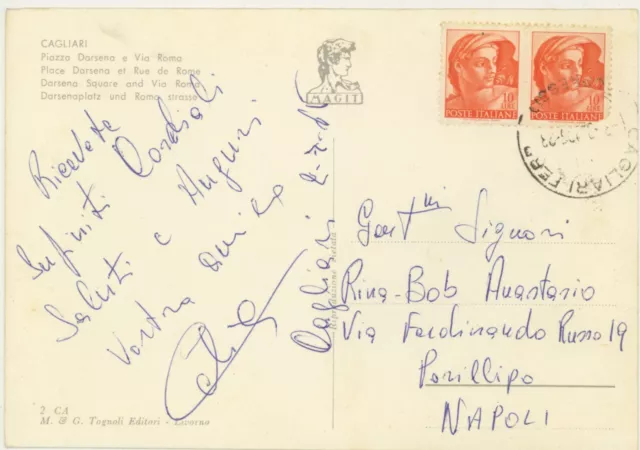 CAGLIARI
Piazza Darsena e Via Roma
Place Darsena et Rue de Rome
Darsena Square and Via Roma
Darsenaplatz und Roma strasse
MAGIT
10 LIRE
POSTE ITALIANE
10 LIRE
POSTE ITALIANE
CAGLIARI FERR
Ricevete
Infiniti Cordiali
Saluti e Auguri
Vostra amica
Cagliari
Riproduzione Vietata
Gent mi Signori
Rina-Bob Anastasio
Via Ferdinando Russo 19
Posillipo
NAPOLI
2 CA
M. & G. Tagnoli Editori - Livorno